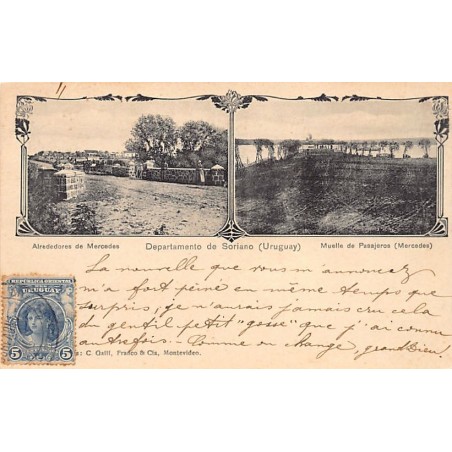 Alrededores de Mercedes
Departamento de Soriano (Uruguay)
Muelle de Pasajeros (Mercedes)
La nouvelle que vous m'annoncez
m'a fort peiné en même temps que
surpris, je n'aurais jamais cru cela
du gentil petit "gosse" que j'ai connu
autrefois. - Comme on change, grand Dieu!
REPUBLICA ORIENTAL
URUGUAY
5 5
: C. Galli, Franco & Cia, Montevideo.